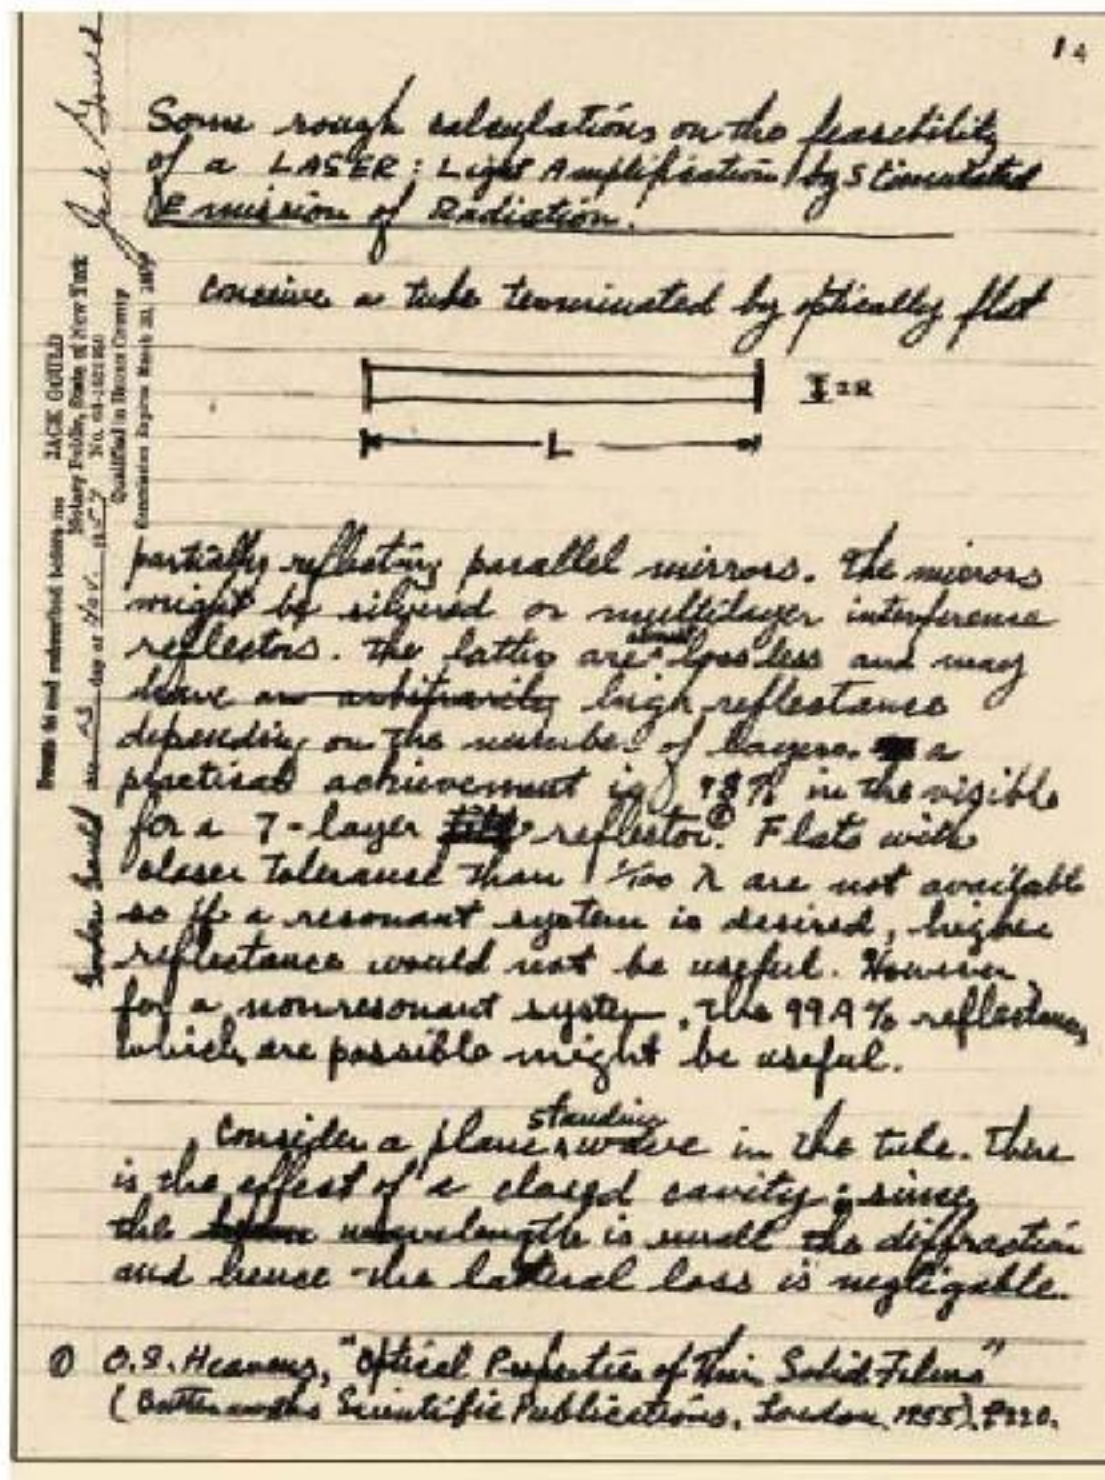 14
Some rough calculations on the feasibility
of a LASER: Light Amplification by Stimulated
Emission of Radiation.
conceive a tube terminated by optically flat
2R
L
partially reflecting parallel mirrors. The mirrors
might be silvered or multilayer interference
reflectors. The latter are almost lossless and may
have an arbitrarily high reflectance
depending on the number of layers. a
practical achievement is 98% in the visible
for a 7-layer reflector.① Flats with
closer tolerance than 1/100 λ are not available
so if a resonant system is desired, higher
reflectance would not be useful. However
for a nonresonant system, the 99.9% reflectances
which are possible might be useful.
Consider a plane standing wave in the tube. There
is the effect of a closed cavity; since
the wavelength is small the diffraction
and hence the lateral loss is negligable.
① O.S. Heavens, "Optical Properties of Thin Solid Films"
(Butterworths Scientific Publications, London, 1955), P220.
Jack Gould
JACK GOULD
Notary Public, State of New York
Qualified in Bronx County
Commission Expires March 30, 19
and subscribed before me
day of Nov. 1957
Gordon Gould